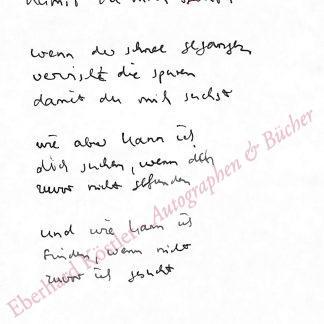 damit du mich suchst
wenn der schnee gefangen
verwischt die spuren
damit du mich suchst
wie aber kann ich
dich suchen, wenn ich
zuvor nicht gefunden
und wie kann ich
finden, wenn nicht
zuvor ich gesucht
Eberhard Köstler, Autographen & Bücher